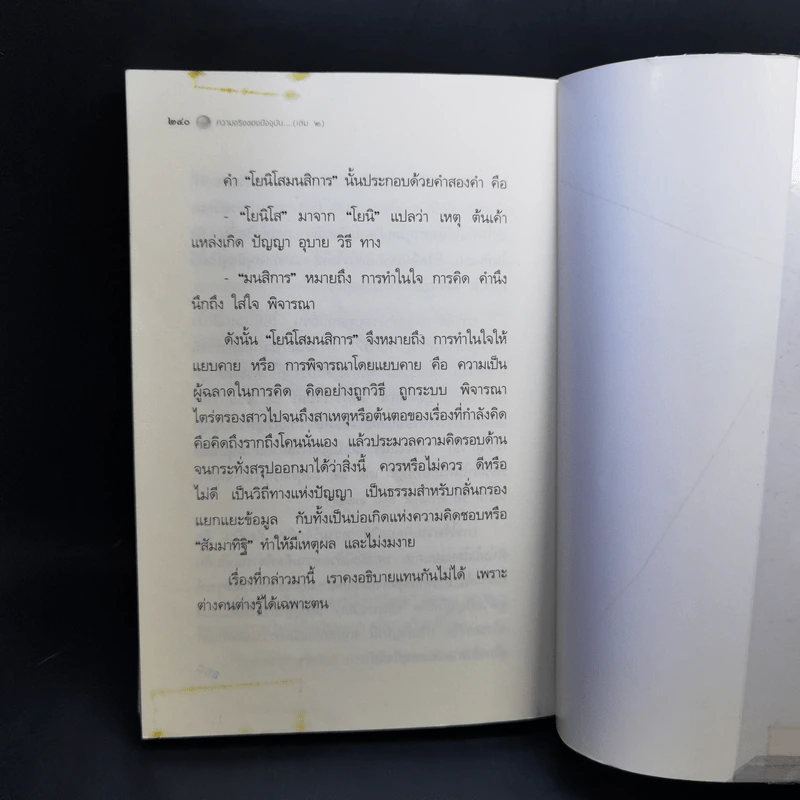 ๒๔๐ ความจริงของปัจจุบัน... (เล่ม ๒)
คำ “โยนิโสมนสิการ” นั้นประกอบด้วยคำสองคำ คือ
- “โยนิโส” มาจาก “โยนิ” แปลว่า เหตุ ต้นเค้า
แหล่งเกิด ปัญญา อุบาย วิธี ทาง
- “มนสิการ” หมายถึง การทำในใจ การคิด คำนึง
นึกถึง ใส่ใจ พิจารณา
ดังนั้น “โยนิโสมนสิการ” จึงหมายถึง การทำในใจให้
แยบคาย หรือ การพิจารณาโดยแยบคาย คือ ความเป็น
ผู้ฉลาดในการคิด คิดอย่างถูกวิธี ถูกระบบ พิจารณา
ไตร่ตรองสาวไปจนถึงสาเหตุหรือต้นตอของเรื่องที่กำลังคิด
คือคิดถึงรากถึงโคนนั่นเอง แล้วประมวลความคิดรอบด้าน
จนกระทั่งสรุปออกมาได้ว่าสิ่งนี้ ควรหรือไม่ควร ดีหรือ
ไม่ดี เป็นวิถีทางแห่งปัญญา เป็นธรรมสำหรับกลั่นกรอง
แยกแยะข้อมูล กับทั้งเป็นบ่อเกิดแห่งความคิดชอบหรือ
“สัมมาทิฐิ” ทำให้มีเหตุผล และไม่งมงาย
เรื่องที่กล่าวมานี้ เราคงอธิบายแทนกันไม่ได้ เพราะ
ต่างคนต่างรู้ได้เฉพาะตน